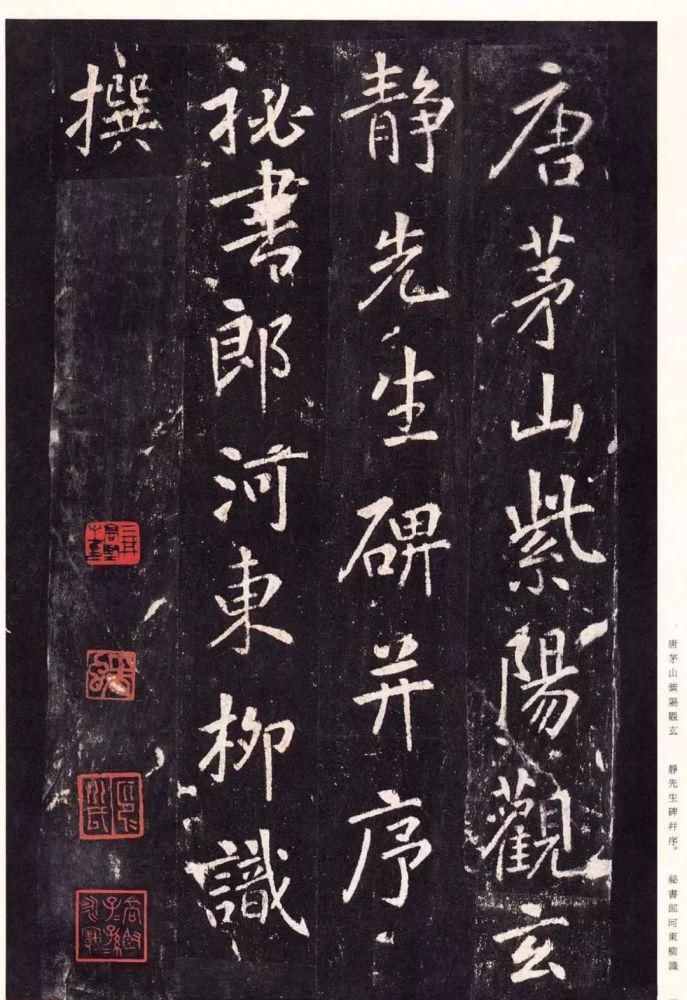 唐茅山紫陽觀玄
靜先生碑并序
祕書郎河東柳識
撰
唐茅山紫陽觀玄 靜先生碑幷序。 祕書郎河東柳識